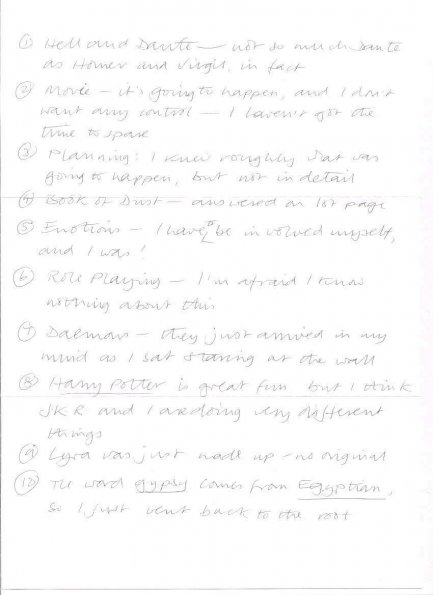 ① Hell and Dante — not so much Dante
as Homer and Virgil, in fact
② Movie — it's going to happen, and I don't
want any control — I haven't got the
time to spare
③ Planning: I knew roughly what was
going to happen, but not in detail
④ Book of Dust — answered on 1st page
⑤ Emotions — I have to be involved myself,
and I was!
⑥ Role Playing — I'm afraid I know
nothing about this
⑦ Daemons — they just arrived in my
mind as I sat staring at the wall
⑧ Harry Potter is great fun but I think
JKR and I are doing very different
things
⑨ Lyra was just made up — no original
⑩ The word gypsy comes from Egyptian,
so I just went back to the root